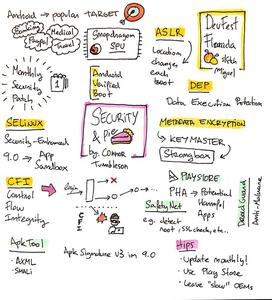 Android → popular TARGET
Banking
Medical
Paypal
Travel
Snapdragon
SPU
ASLR
Location
changes
each
boot
DevFest
Florida
Monthly
Security
Patch
1
Android
Verified
Boot
DEP
Data Execution Protection
SELinux
Security-Enhanced
9.0 → App
Sandbox
Security
& Pie
by: Connor
Tumbleson
METADATA ENCRYPTION
KEYMASTER
Strongbox
CFI
Control
Flow
Integrity
login
C
F
I
PLAYSTORE
PHA → Potential
Harmful
Apps
SafetyNet
e.g. detect
root, SSL check, etc.
Droid Guard
Anti-Malware
ApkTool
- AXML
- SMALI
Apk Signature V3 in 9.0
Tips
- Update monthly!
- Use Play Store
- Leave "slow" OEMs